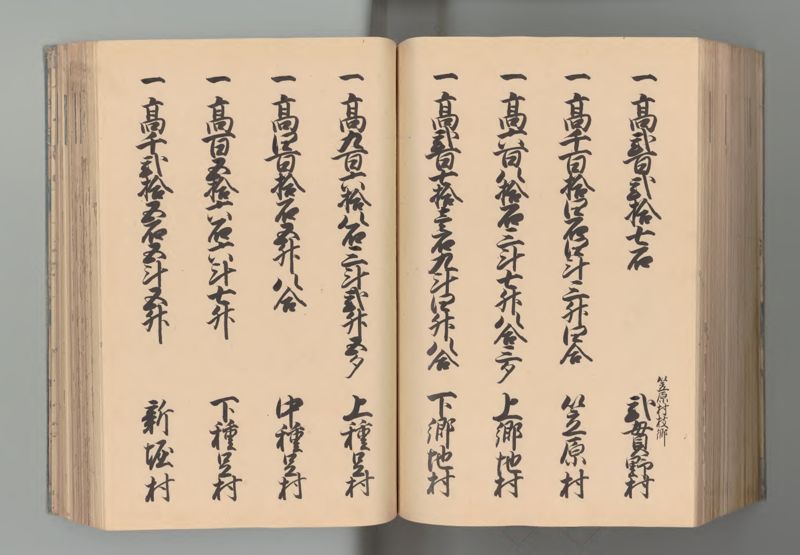 一 高弐百弐拾七石
笠原村枝郷
弐貫野村
一 高千百拾四石四斗三升四合
笠原村
一 高六百八拾石三斗七升八合三夕
上郷地村
一 高弐百七拾三石九斗四升八合
下郷地村
一 高九百六拾八石三斗弐升五夕
上種足村
一 高四百拾石五升八合
中種足村
一 高百五拾六石六斗七升
下種足村
一 高千弐拾五石五斗五升
新堀村